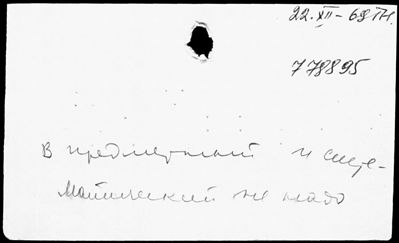 22.XII-69 г.
778895
В предметный и систе-
матический не надо